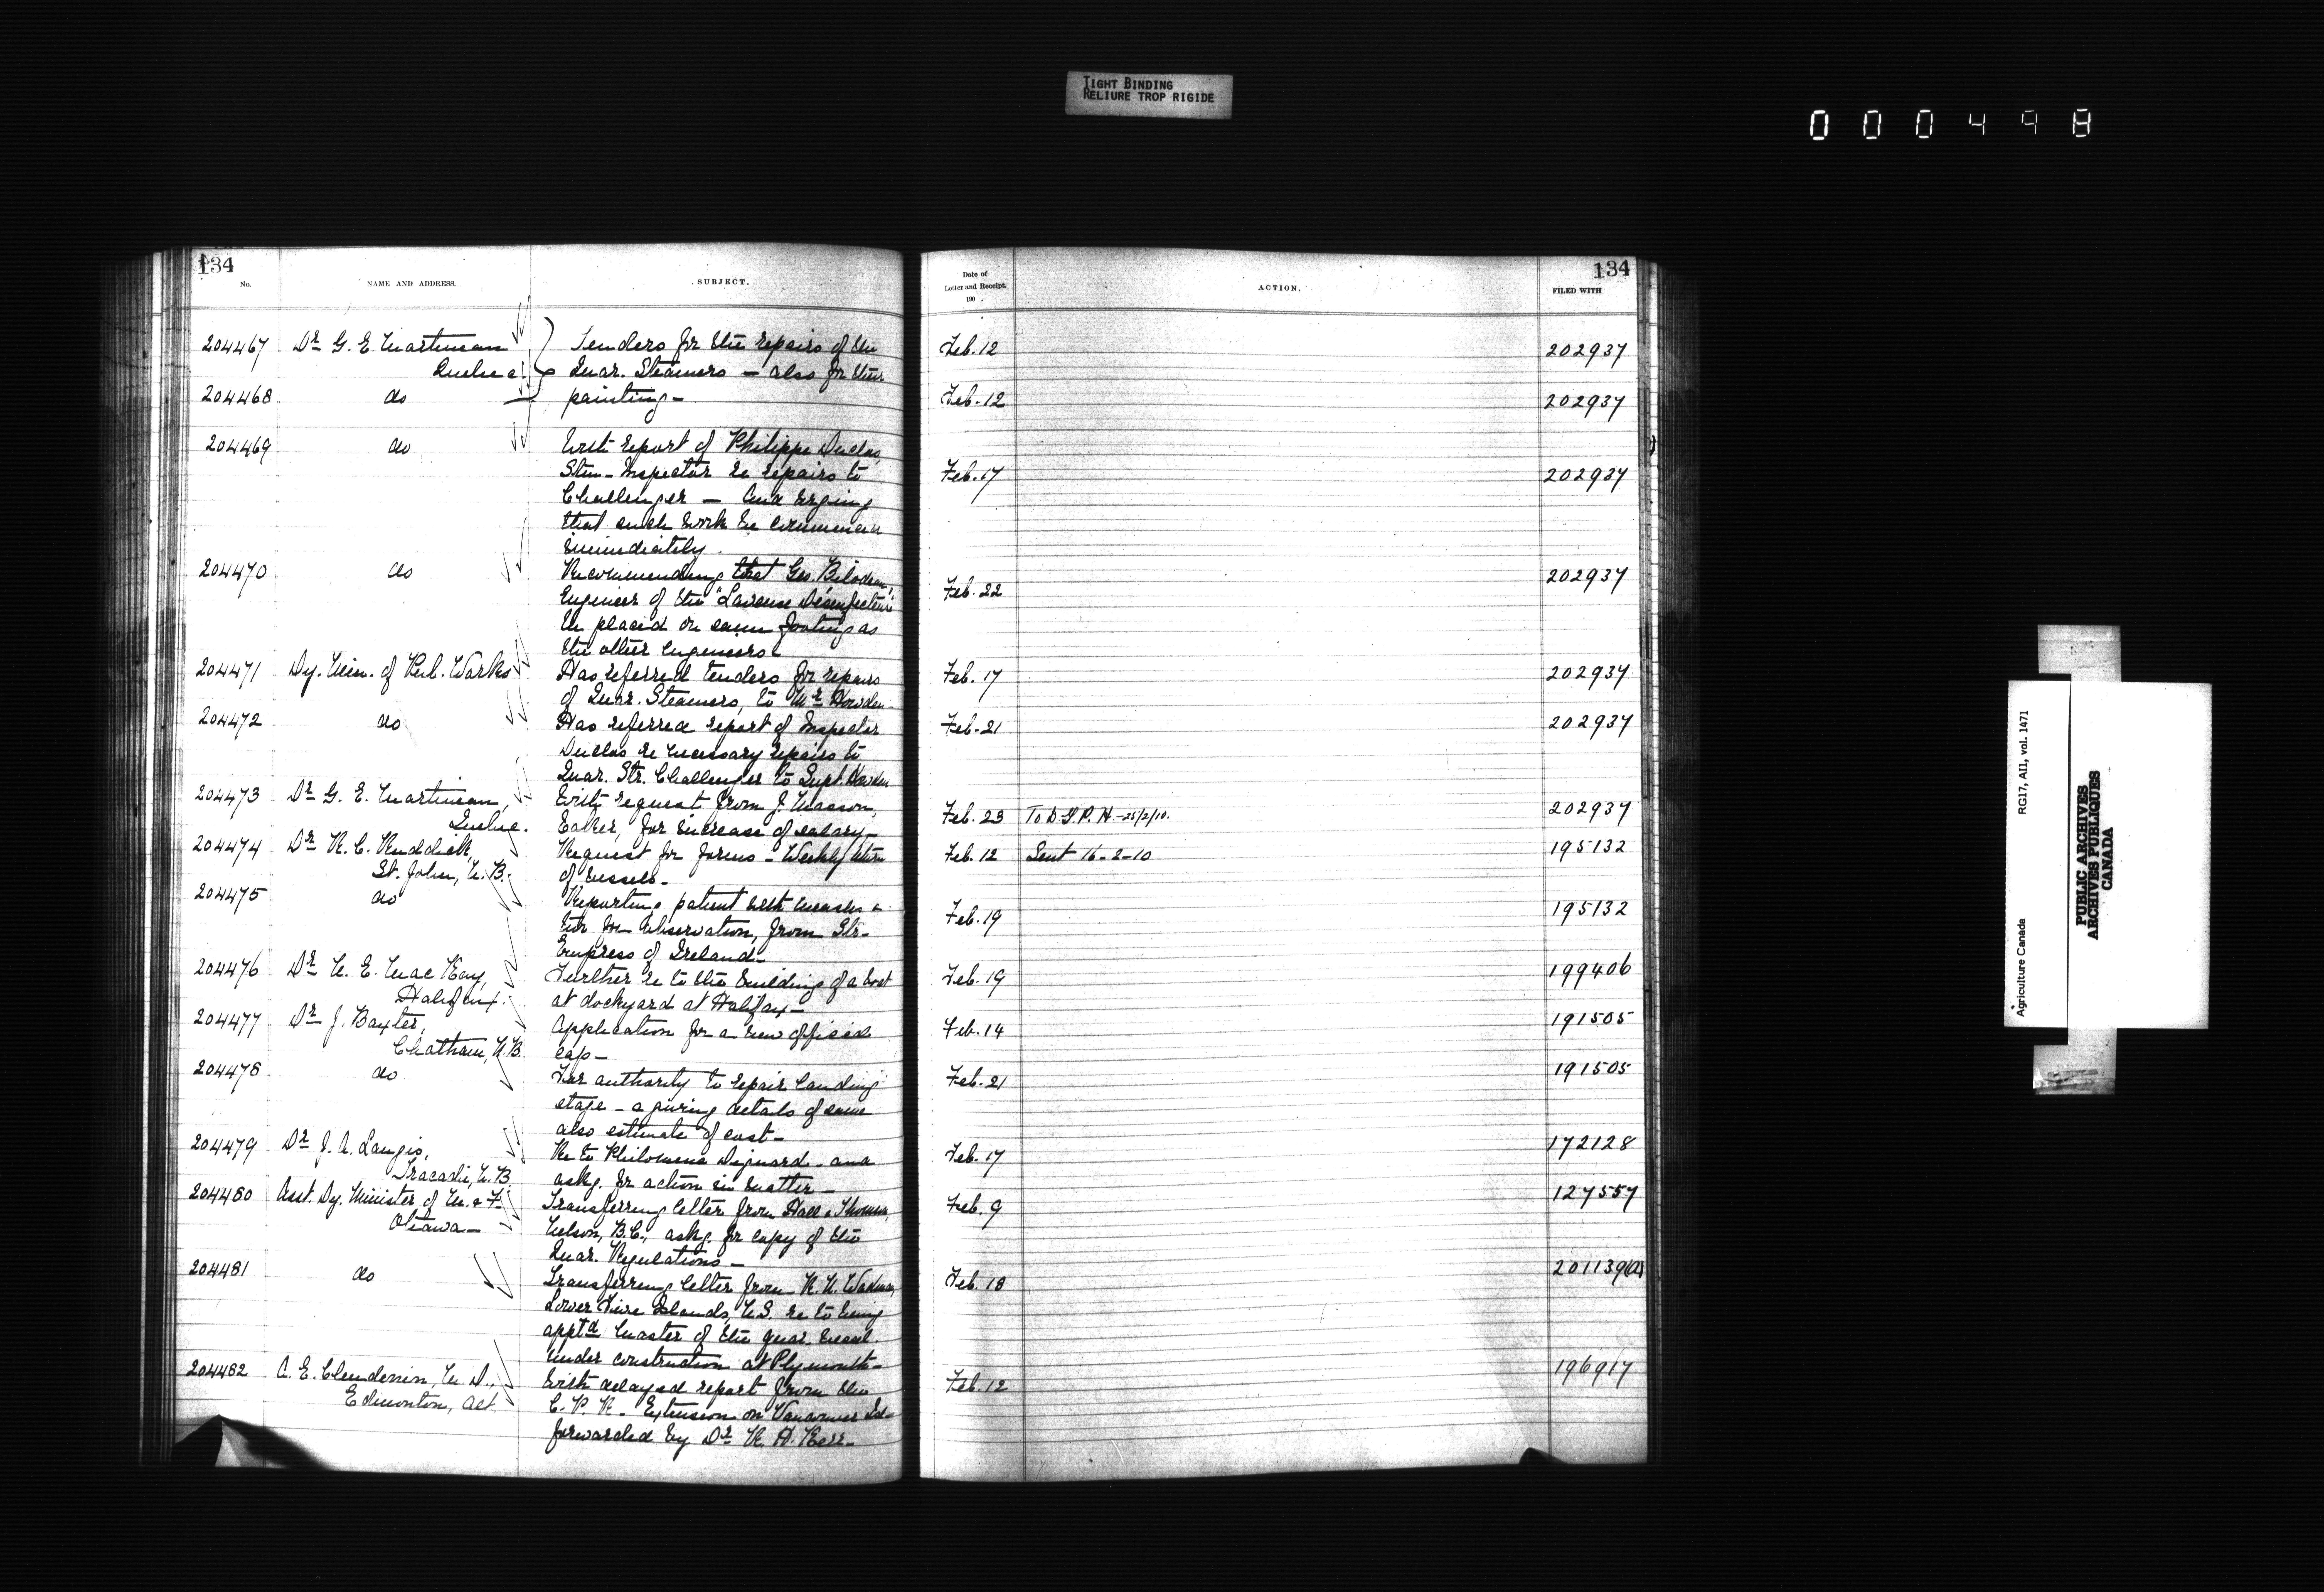 TIGHT BINDING
RELIURE TROP RIGIDE
000498
134
No.
NAME AND ADDRESS.
SUBJECT.
204467 Dr G. E. Martineau
Quebec.
Tenders for the repairs of the
Quar. Steamers — also for their
204468 do
painting —
204469 do
With report of Philippe Duclos,
Stm. Inspector re repairs to
Challenger — and urging
that such work be commenced
immediately.
204470 do
Recommending that Geo. Bilodeau,
Engineer of the "Lawrence Disinfecteur"
be placed on same footing as
the other engineers.
204471 Dy. Min. of Pub. Works
Has referred tenders for repairs
of Quar. Steamers, to Mr Howden.
204472 do
Has referred report of Inspector
Duclos re necessary repairs to
Quar. Str. Challenger to Supt. Howden
204473 Dr G. E. Martineau,
Quebec.
With request from J. Masson,
Baker, for increase of salary —
204474 Dr R. C. Ruddick,
St. John, N.B.
Request for forms — Weekly return
of vessels —
204475 do
Reporting patient with measles &
two for observation, from Str.
Empress of Ireland —
204476 Dr N. E. MacKay,
Halifax.
Further re to the building of a boat
at dockyard at Halifax —
204477 Dr J. Baxter,
Chatham, N.B.
Application for a new official
cap —
204478 do
For authority to repair landing
stage — & giving details of same
also estimate of cost —
204479 Dr J. A. Langis,
Tracadie, N.B.
Re to Philomene and
askg. for action in matter —
204480 Asst. Dy. Minister of M. & F.
Ottawa —
Transferring letter from Hall & Thomson,
Nelson, B.C., askg. for copy of the
Quar. Regulations —
204481 do
Transferring letter from R. N.
Lower Five Islands, N.S. re to being
apptd Master of the quar. vessel
under construction at Plymouth —
204482 A. E. Clendenin, M.D.,
Edmonton, Alt.
With delayed report from the
C.P.R. Extension on Vancouver Isl.
forwarded by Dr R. H. Kerr —
134
Date of
Letter and Receipt.
190 .
ACTION.
FILED WITH
Feb. 12 202937
Feb. 12 202937
Feb. 17 202937
Feb. 22 202937
Feb. 17 202937
Feb. 21 202937
Feb. 23 To D.G.P.H. — 25/2/10. 202937
Feb. 12 Sent 16-2-10 195132
Feb. 19 195132
Feb. 19 199406
Feb. 14 191505
Feb. 21 191505
Feb. 17 172128
Feb. 9 127557
Feb. 18 201139(2)
Feb. 12 196917
Agriculture Canada
RG17, AII, vol. 1471
PUBLIC ARCHIVES
ARCHIVES PUBLIQUES
CANADA